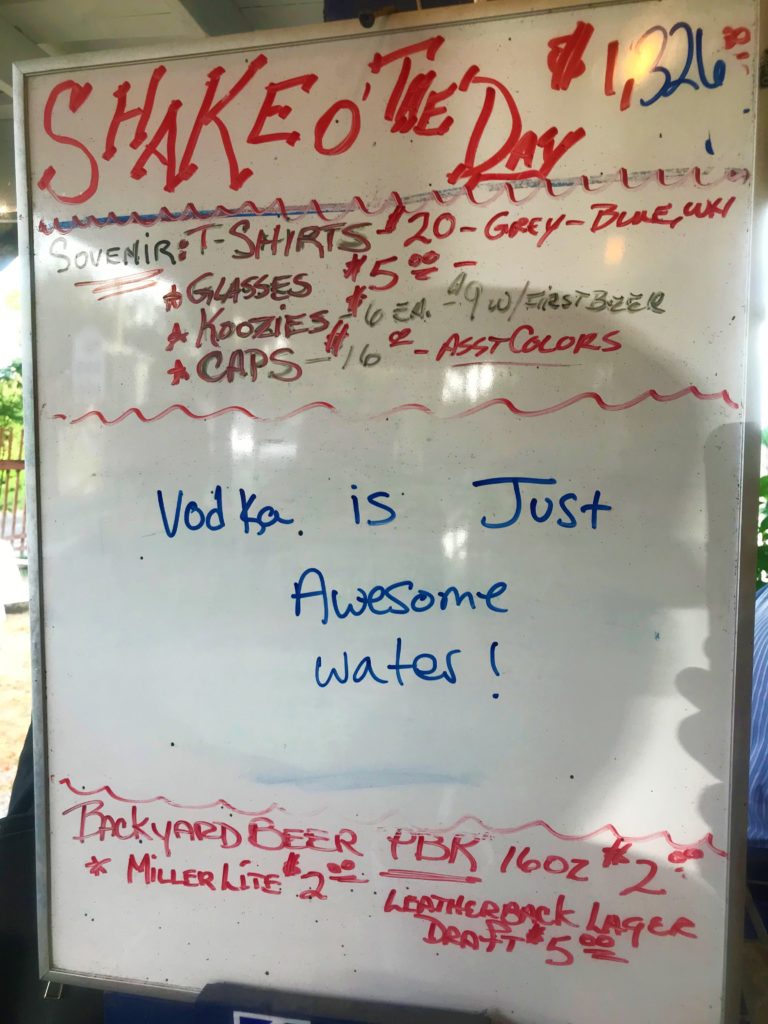 SHAKE O' THE DAY $1,326.00
SOVENIR: T-SHIRTS - $20 - GREY - BLUE, WH
* GLASSES $5.00 -
* KOOZIES - $6 EA. - $9 W/ FIRST BEER
* CAPS - $16 - ASST COLORS
Vodka is Just
Awesome
water!
BACKYARD BEER PBR 16OZ $2.00
* MILLER LITE $2.00
LEATHERBACK LAGER
DRAFT $5.00